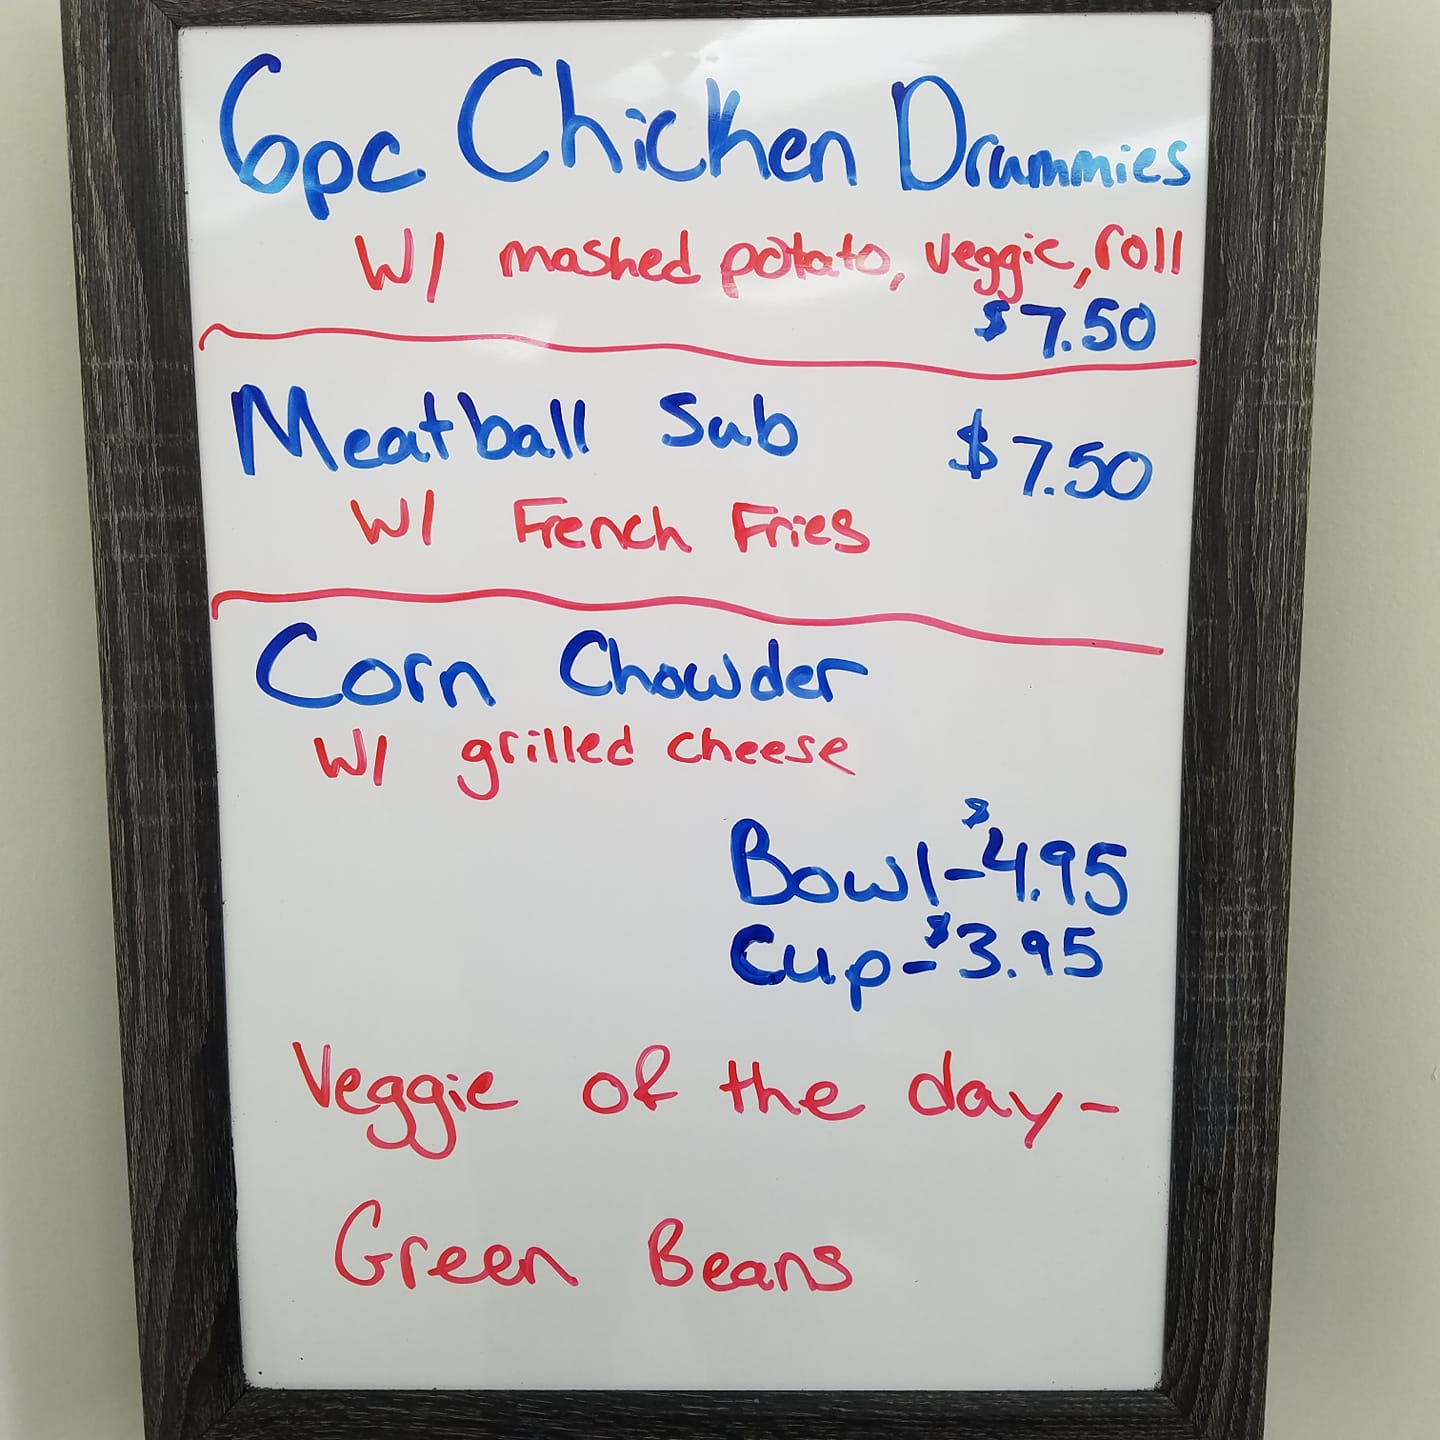 6pc Chicken Drummies
W/ mashed potato, veggie, roll
$7.50
Meatball Sub $7.50
W/ French Fries
Corn Chowder
W/ grilled cheese
Bowl-$4.95
Cup-$3.95
Veggie of the day-
Green Beans